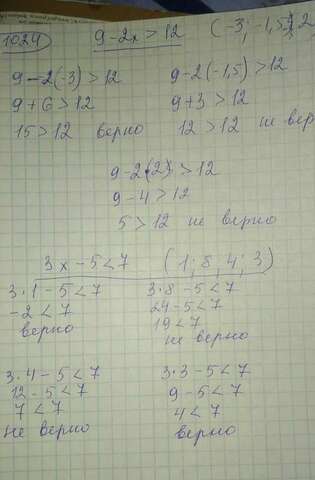 1024 9-2x>12 (-3; -1,5; 2
9-2(-3)>12 9-2(-1,5)>12
9+6>12 9+3>12
15>12 верно 12>12 не вер
9-2·(2)>12
9-4>12
5>12 не верно
3x-5<7 (1; 8; 4; 3)
3·1-5<7 3·8-5<7
-2<7 24-5<7
верно 19<7
не верно
3·4-5<7 3·3-5<7
12-5<7 9-5<7
7<7 4<7
не верно верно